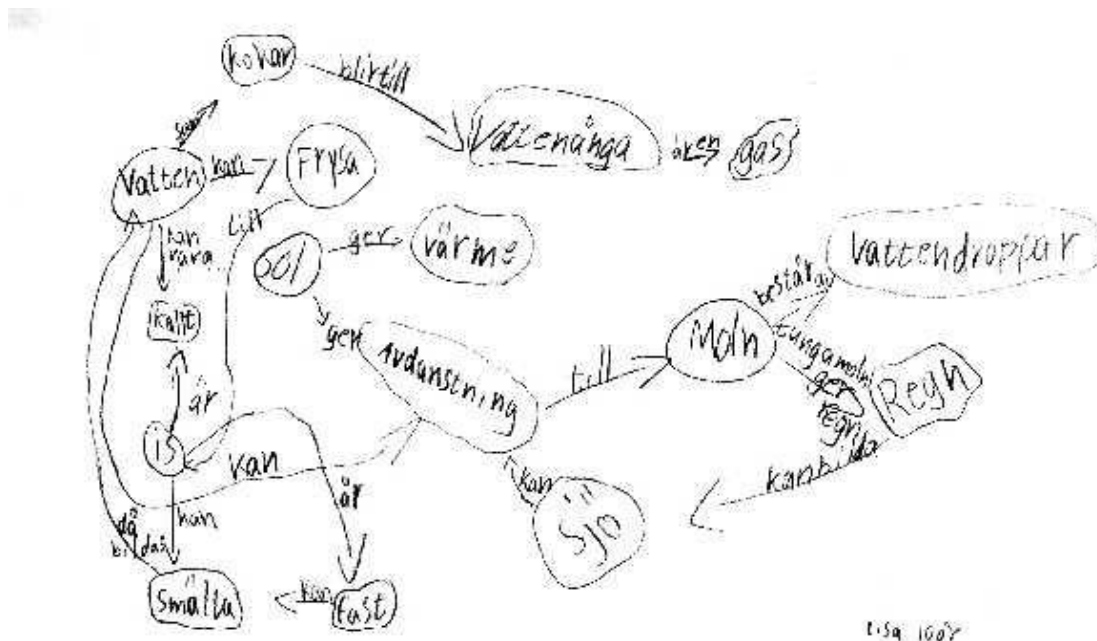 kokar
blir till
Vattenånga
är en
gas
Vatten
kan
Frysa
till
kan
vara
kallt
sol
ger
värme
ger
Avdunstning
till
Moln
består av
vattendroppar
tunga moln
ger
Regn
kan bilda
sjö
kan
är
is
kan
är
kan
då
smälta
kan
fast